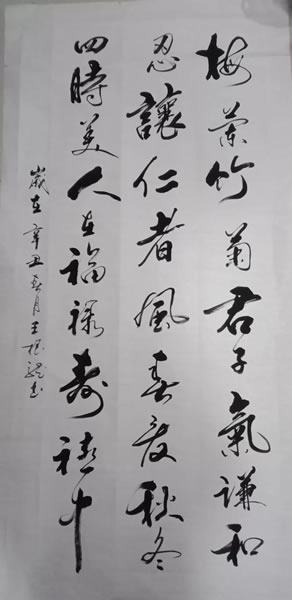 梅蘭竹菊君子氣謙和
忍讓仁者風春夏秋冬
四時美人在福祿壽禧中
歲在辛丑春月王